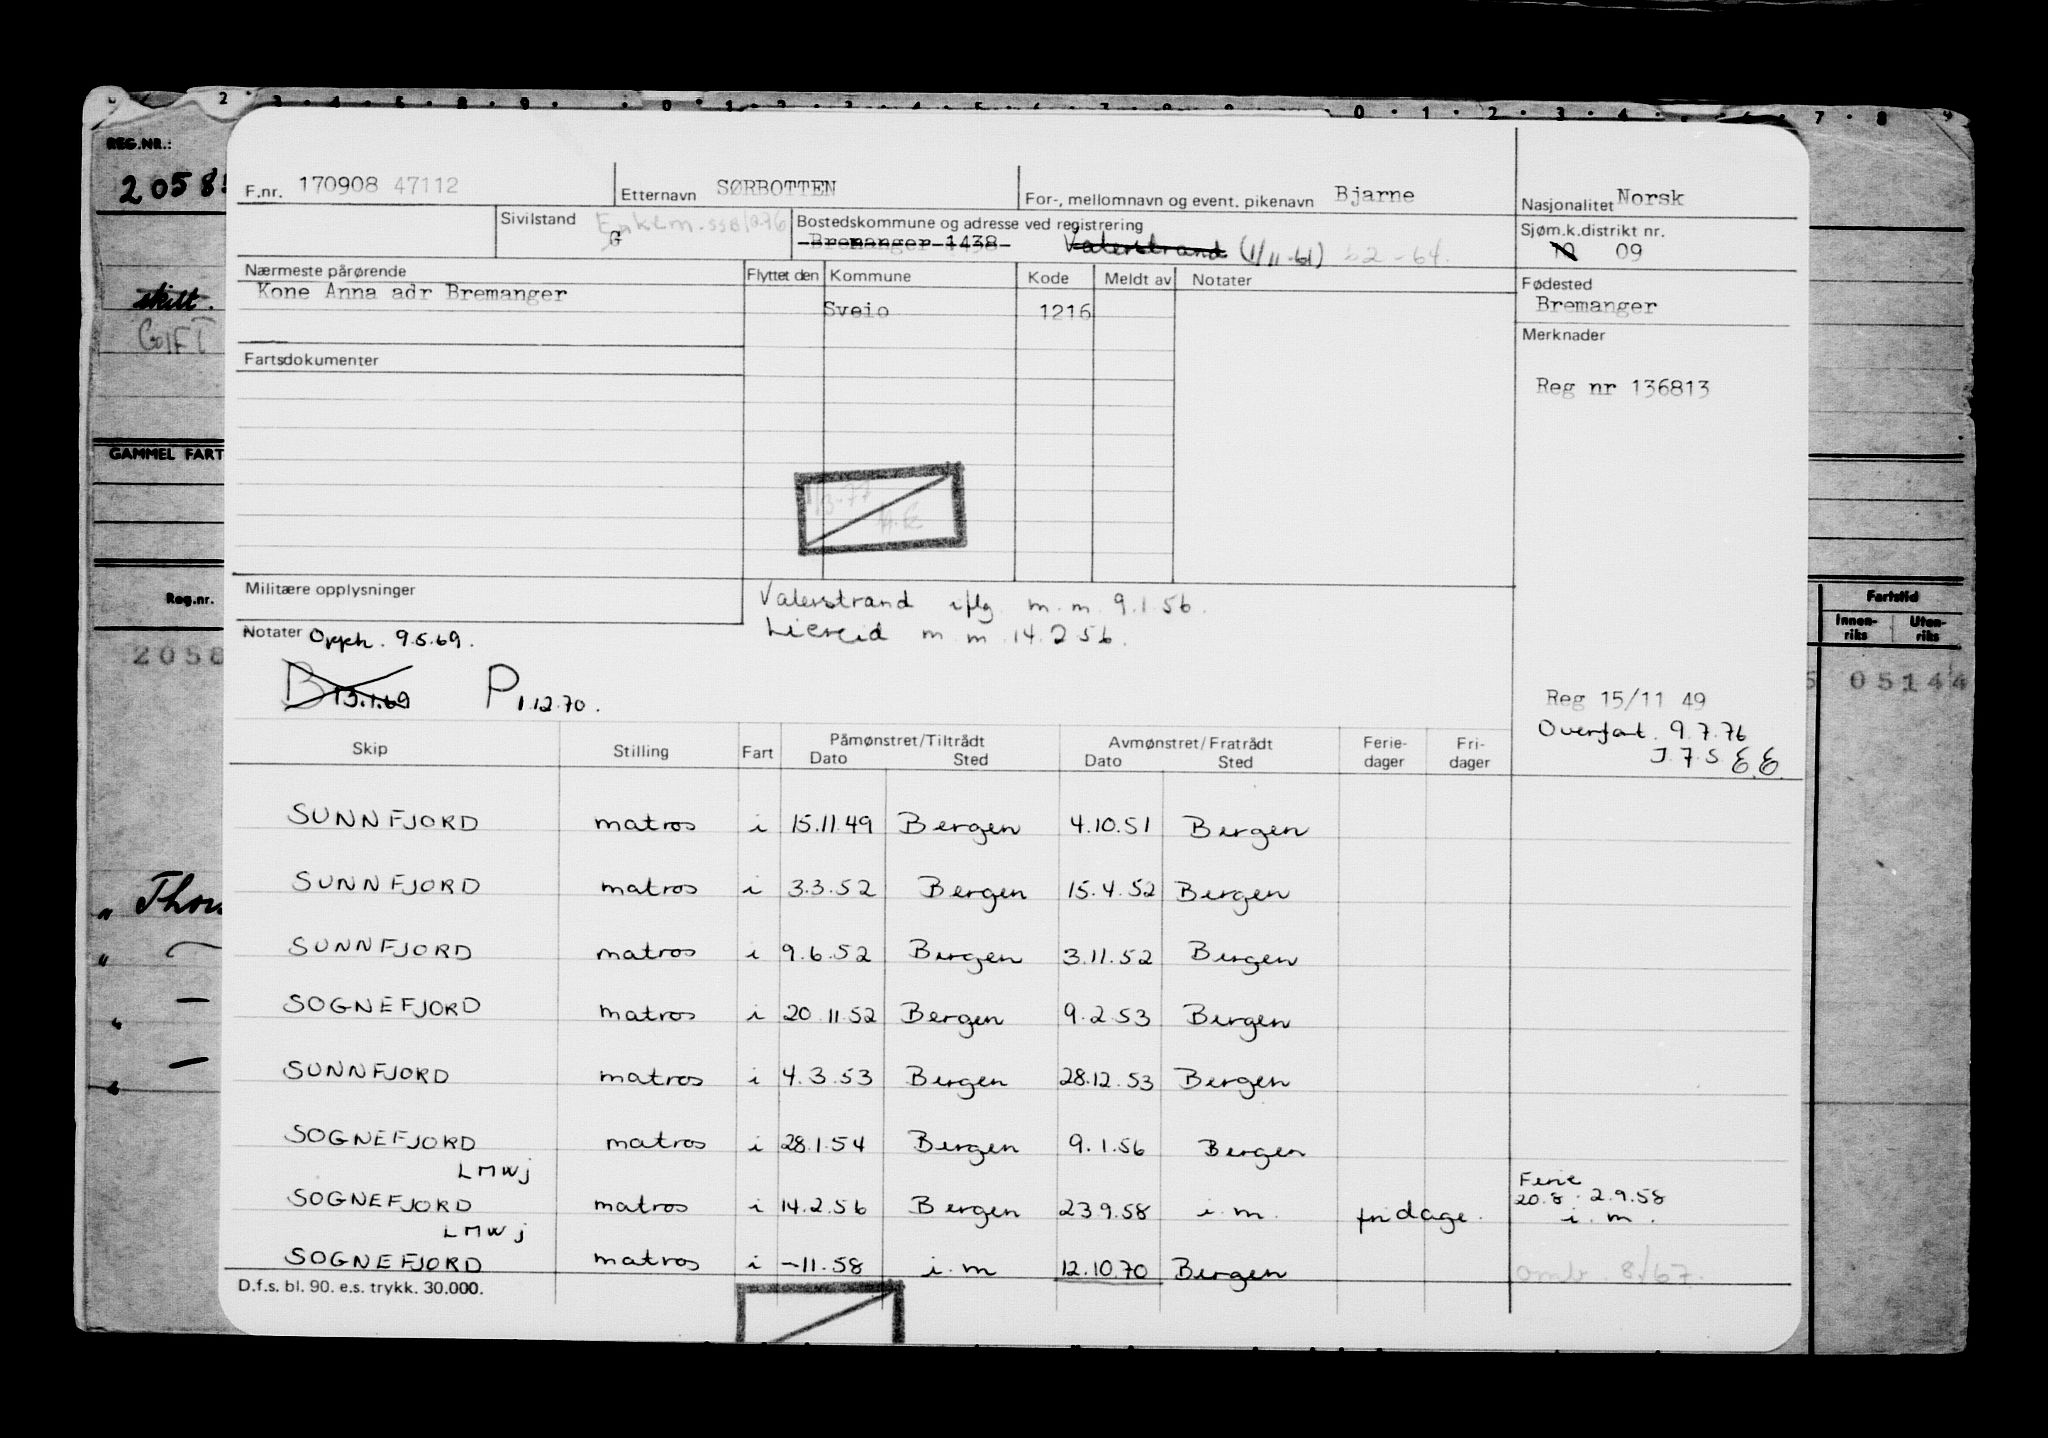 REG.NR.:
F.nr. 170908 47112
Etternavn SØRBOTTEN
For-, mellomnavn og event. pikenavn Bjarne
Nasjonalitet Norsk
Sivilstand G
Bostedskommune og adresse ved registrering
Bremanger 1438 Valerstrand (1/11-61) 52-64.
Sjøm.k.distrikt nr.
09
Nærmeste pårørende
Kone Anna adr Bremanger
Flyttet den Kommune Kode Meldt av Notater
Sveio 1216
Fødested
Bremanger
skilt.
GIFT
Merknader
Reg nr 136813
Fartsdokumenter
GAMMEL FART
1/3-77
Militære opplysninger
Valerstrand iflg. m.m. 9.1.56.
Liereid m.m. 14.2.56.
Notater Opph. 9.5.69.
B 13.1.69 P 1.12.70.
Reg.nr.
Fartstid
Innen-riks Uten-riks
2058
05144
Reg 15/11 49
Overført. 9.7.76
Skip Stilling Fart Påmønstret/Tiltrådt Dato Sted Avmønstret/Fratrådt Dato Sted Ferie-dager Fri-dager
SUNNFJORD matros i 15.11.49 Bergen 4.10.51 Bergen
SUNNFJORD matros i 3.3.52 Bergen 15.4.52 Bergen
SUNNFJORD matros i 9.6.52 Bergen 3.11.52 Bergen
SOGNEFJORD matros i 20.11.52 Bergen 9.2.53 Bergen
SUNNFJORD matros i 4.3.53 Bergen 28.12.53 Bergen
SOGNEFJORD matros i 28.1.54 Bergen 9.1.56 Bergen
LMWJ
SOGNEFJORD matros i 14.2.56 Bergen 23.9.58 i.m. fridage. Ferie 20.8 - 2.9.58 i.m.
LMWJ
SOGNEFJORD matros i -11.58 i.m 12.10.70 Bergen omb. 8/67.
D.f.s. bl. 90. e.s. trykk. 30.000.